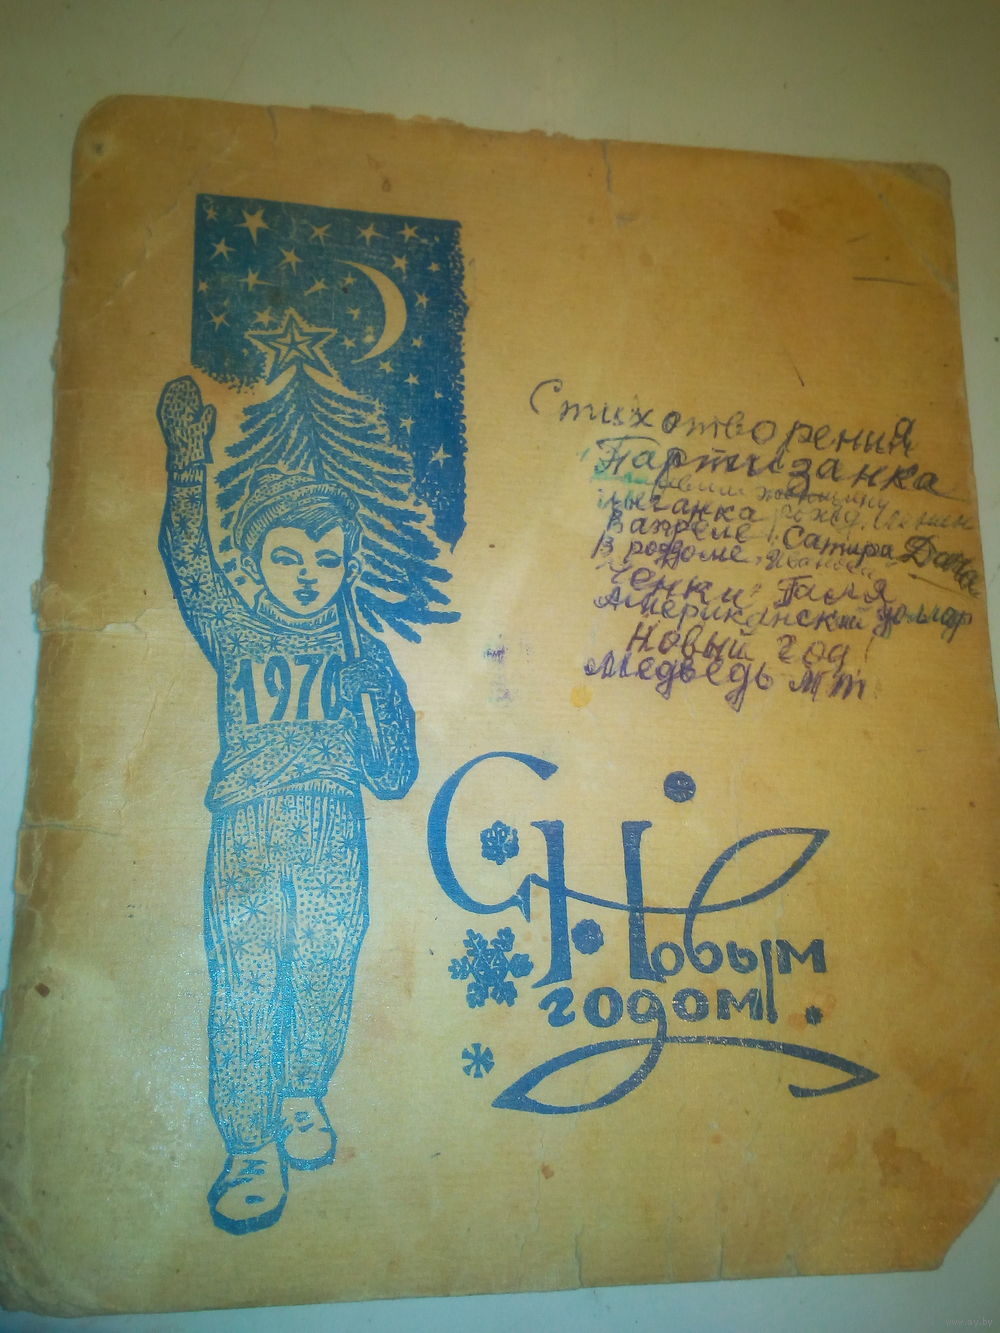 1970
Стихотворения
Партизанка
Цыганка рожд. Ленин
В апреле. Сатира Дача
В роддоме.
Ченки Галя
Американский доллар
Новый год
Медведь
С Новым
годом!
www.ay.by